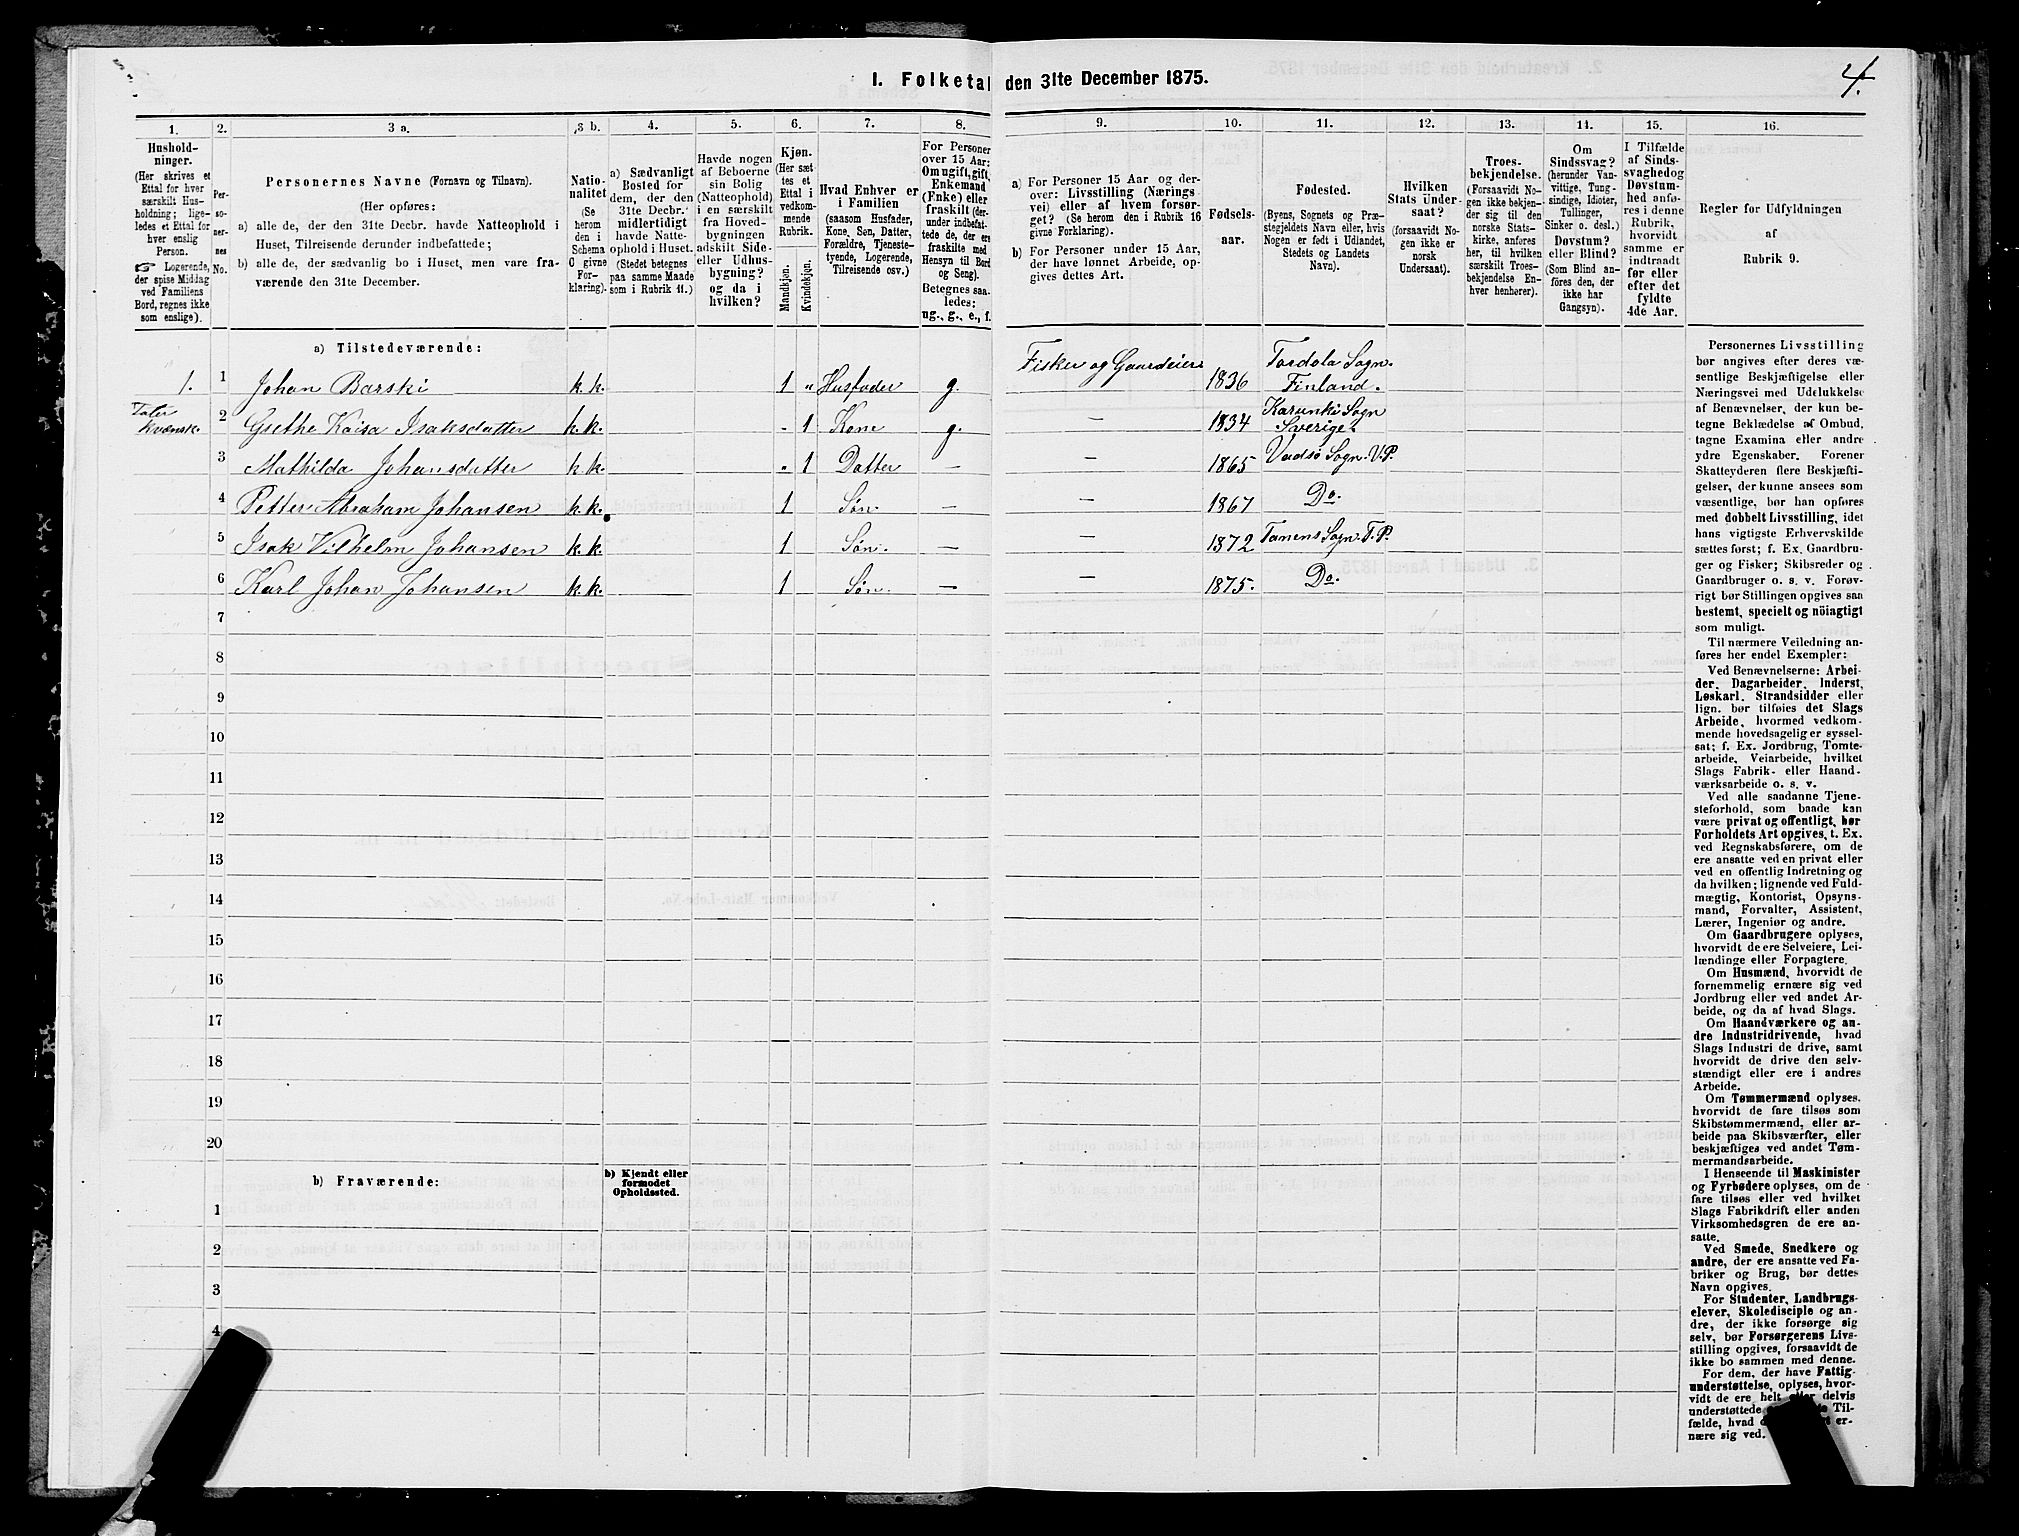 I. Folketal den 31te December 1875.
4.
1. 2. 3 a. 3 b. 4. 5. 6. 7. 8. 9. 10. 11. 12. 13. 14. 15. 16.
Hushold-
ninger.
(Her skrives et
Ettal for hver
særskilt Hus-
holdning; lige-
ledes et Ettal for
hver enslig
Person.
☞ Logerende,
der spise Middag
ved Familiens
Bord, regnes ikke
som enslige).
Per-
so-
ner-
nes
No.
Personernes Navne (Fornavn og Tilnavn).
(Her opføres:
a) alle de, der den 31te Decbr. havde Natteophold i
Huset, Tilreisende derunder indbefattede;
b) alle de, der sædvanlig bo i Huset, men vare fra-
værende den 31te December.
Natio-
nalitet
(Se
herom
den i
Schema
O givne
For-
klaring).
a) Sædvanligt
Bosted for
dem, der den
31te Decbr.
midlertidigt
havde Natte-
ophold i Huset.
(Stedet betegnes
paa samme Maade
som i Rubrik 11.)
Havde nogen
af Beboerne
sin Bolig
(Natteophold)
i en særskilt
fra Hoved-
bygningen
adskilt Side-
eller Udhus-
bygning?
og da i
hvilken?
Kjøn.
(Her sæt-
tes et
Ettal i
vedkom-
mende
Rubrik.
Mandkjøn.
Kvindekjøn.
Hvad Enhver er
i Familien
(saasom Husfader,
Kone, Søn, Datter,
Forældre, Tjeneste-
tyende, Logerende,
Tilreisende osv.)
For Personer
over 15 Aar:
Om ugift, gift,
Enkemand
(Enke) eller
fraskilt (der-
under indbefat-
tede de, der ere
fraskilte med
Hensyn til Bord
og Seng).
Betegnes saa-
ledes:
ug., g., e., f.
a) For Personer 15 Aar og der-
over: Livsstilling (Nærings-
vei) eller af hvem forsør-
get? (Se herom den i Rubrik 16
givne Forklaring).
b) For Personer under 15 Aar,
der have lønnet Arbeide, op-
gives dettes Art.
Fødsels-
aar.
Fødested.
(Byens, Sognets og Præ-
stegjeldets Navn eller, hvis
Nogen er født i Udlandet,
Stedets og Landets
Navn).
Hvilken
Stats Under-
saat?
(forsaavidt No-
gen ikke er
norsk
Undersaat).
Troes-
bekjendelse.
(Forsaavidt No-
gen ikke bekjen-
der sig til den
norske Stats-
kirke, anføres
her, til hvilken
særskilt Troes-
bekjendelse En-
hver henhører).
Om
Sindssvag?
(herunder Van-
vittige, Tung-
sindige, Idioter,
Tullinger,
Sinker o. desl.)
Døvstum?
eller Blind?
(Som Blind an-
føres den, der
ikke har
Gangsyn).
I Tilfælde
af Sinds-
svaghed og
Døvstum-
hed anfø-
res i denne
Rubrik,
hvorvidt
samme er
indtraadt
før eller
efter det
fyldte
4de Aar.
Regler for Udfyldningen
af
Rubrik 9.
a) Tilstedeværende:
1. 1 Johan Barski k.k. 1 " Husfader g. Fisker og Gaardeier 1836 Tordola Sogn. Finland.
Taler
Kvænsk. 2 Grethe Kaisa Isaksdatter k.k. - 1 Kone g. — 1834 Karunki Sogn Sverige.
3 Mathilda Johansdatter k.k. - 1 Datter — — 1865 Vadsø Sogn. V.P.
4 Petter Abraham Johansen k.k. 1 Søn. — — 1867 Do.
5 Isak Vilhelm Johansen k.k. 1 Søn. — — 1872 Tanens Sogn. T.P.
6 Karl Johan Johansen k.k. 1 Søn. — — 1875. Do.
7
8
9
10
11
12
13
14
15
16
17
18
19
20
b) Fraværende:
b) Kjendt eller
formodet
Opholdssted.
1
2
3
4
Personernes Livsstilling
bør angives efter deres væ-
sentlige Beskjæftigelse eller
Næringsvei med Udelukkelse
af Benævnelser, der kun be-
tegne Beklædelse af Ombud,
tagne Examina eller andre
ydre Egenskaber. Forener
Skatteyderen flere Beskjæfti-
gelser, der kunne ansees som
væsentlige, bør han opføres
med dobbelt Livsstilling, idet
hans vigtigste Erhvervskilde
sættes først; f. Ex. Gaardbru-
ger og Fisker; Skibsreder og
Gaardbruger o. s. v. Forøv-
rigt bør Stillingen opgives saa
bestemt, specielt og nöiagtigt
som muligt.
Til nærmere Veiledning an-
føres her endel Exempler:
Ved Benævnelserne: Arbei-
der, Dagarbeider, Inderst,
Løskarl, Strandsidder eller
lign. bør tilføies det Slags
Arbeide, hvormed vedkom-
mende hovedsagelig er syssel-
sat; f. Ex. Jordbrug, Tomte-
arbeide, Veiarbeide, hvilket
Slags Fabrik- eller Haand-
værksarbeide o. s. v.
Ved alle saadanne Tjene-
steforhold, som baade kan
være privat og offentligt, bør
Forholdets Art opgives, t. Ex.
ved Regnskabsførere, om de
ere ansatte ved en privat eller
ved en offentlig Indretning og
da hvilken; lignende ved Fuld-
mægtig, Kontorist, Opsyns-
mand, Forvalter, Assistent,
Lærer, Ingeniør og andre.
Om Gaardbrugere oplyses,
hvorvidt de ere Selveiere, Lei-
lændinge eller Forpagtere.
Om Husmænd, hvorvidt de
fornemmelig ernære sig ved
Jordbrug eller ved andet Ar-
beide, og da af hvad Slags.
Om Haandværkere og an-
dre Industridrivende, hvad
Slags Industri de drive, samt
hvorvidt de drive den selv-
stændigt eller ere i andres
Arbeide.
Om Tømmermænd oplyses,
hvorvidt de fare tilsøs som
Skibstømmermænd, eller ar-
beide paa Skibsværfter, eller
beskjæftiges ved andet Tøm-
mermandsarbeide.
I Henseende til Maskinister
og Fyrbødere oplyses, om de
fare tilsøs eller ved hvilket
Slags Fabrikdrift eller anden
Virksomhedsgren de ere an-
satte.
Ved Smede, Snedkere og
andre, der ere ansatte ved Fa-
briker og Brug, bør dettes
Navn opgives.
For Studenter, Landbrugs-
elever, Skoledisciple og an-
dre, der ikke forsørge sig
selv, bør Forsørgerens Livs-
stilling opgives, forsaavidt de
ikke bo sammen med denne.
For dem, der have Fattig-
understøttelse, oplyses, hvor-
vidt de ere helt eller delvis
understøttede Til-
fælde, hvad er-
nære sig ved.